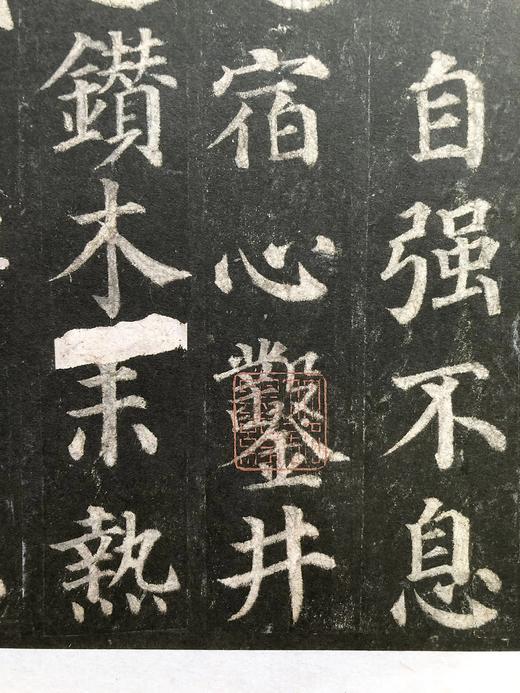 自强不息
宿心鑿井
鑽木未熱